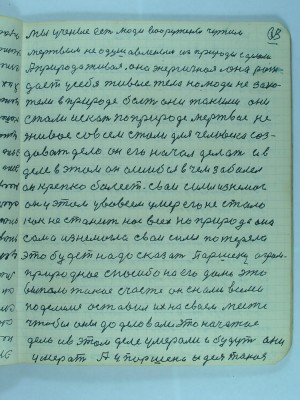 63
мы учение есть люди вооружены чужим
мертвым не одушавленым из природы сделали
А природа живая, она энергичная, она рож
дает у себя живые тело но люди не захо
тели в природе быть они такими они
стали искать по природе мертвое не
живое совсем стали для человека соз
давать дело он его начал делать и в
деле в этом он ошибся в чем заболел
он крепко болеет. свои сили изнемог
он у этом у во всем умер его не стало
как не станит нас всех но природе она
сама изнемогла свои сили потеряла
это будет надо сказать Паршеку огром.
природное спосибо на его дано это
выпала такое счастя он с нами всеми
поделился оставил их на своем месте
чтобы они до дела
дела и в этом деле умерали и будут они
умерать А у поршека идея такая